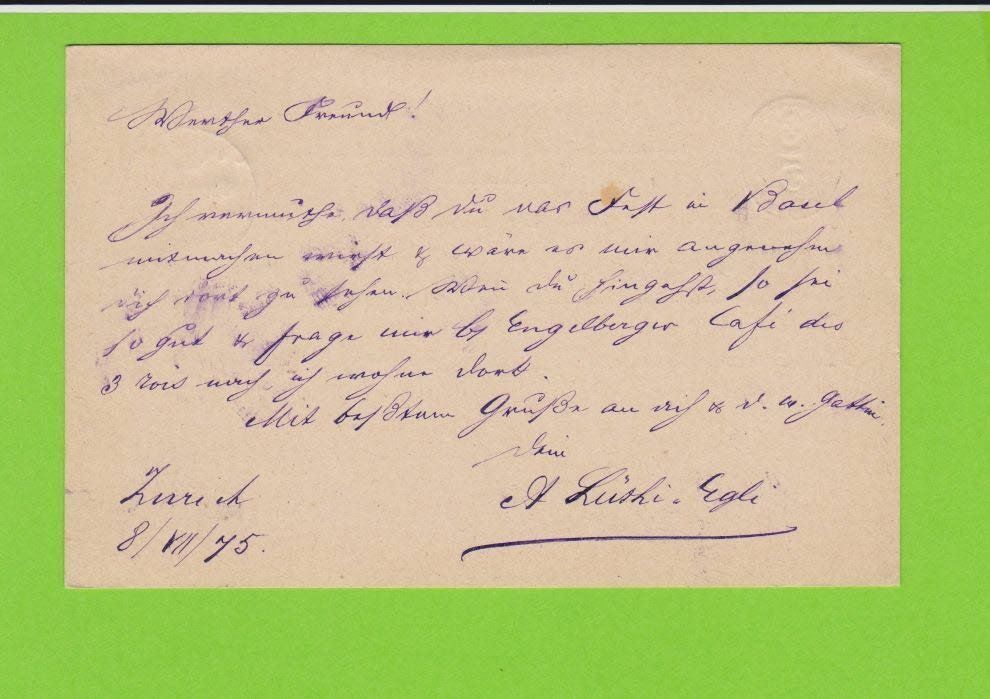 Werther Freund!
Ich vermuthe daß du das Fest in Basel
mitmachen wirst & wäre es mir angenehm
dich dort zu sehen. Wen̄ du hingehst, so sei
so gut & frage mir bei Engelberger Café des
3 rois nach, ich wohne dort.
Mit beßtem Gruße an dich & d. w. Gattin.
Dein
A Lüthi-Egli
Zürich
8/VII/75.